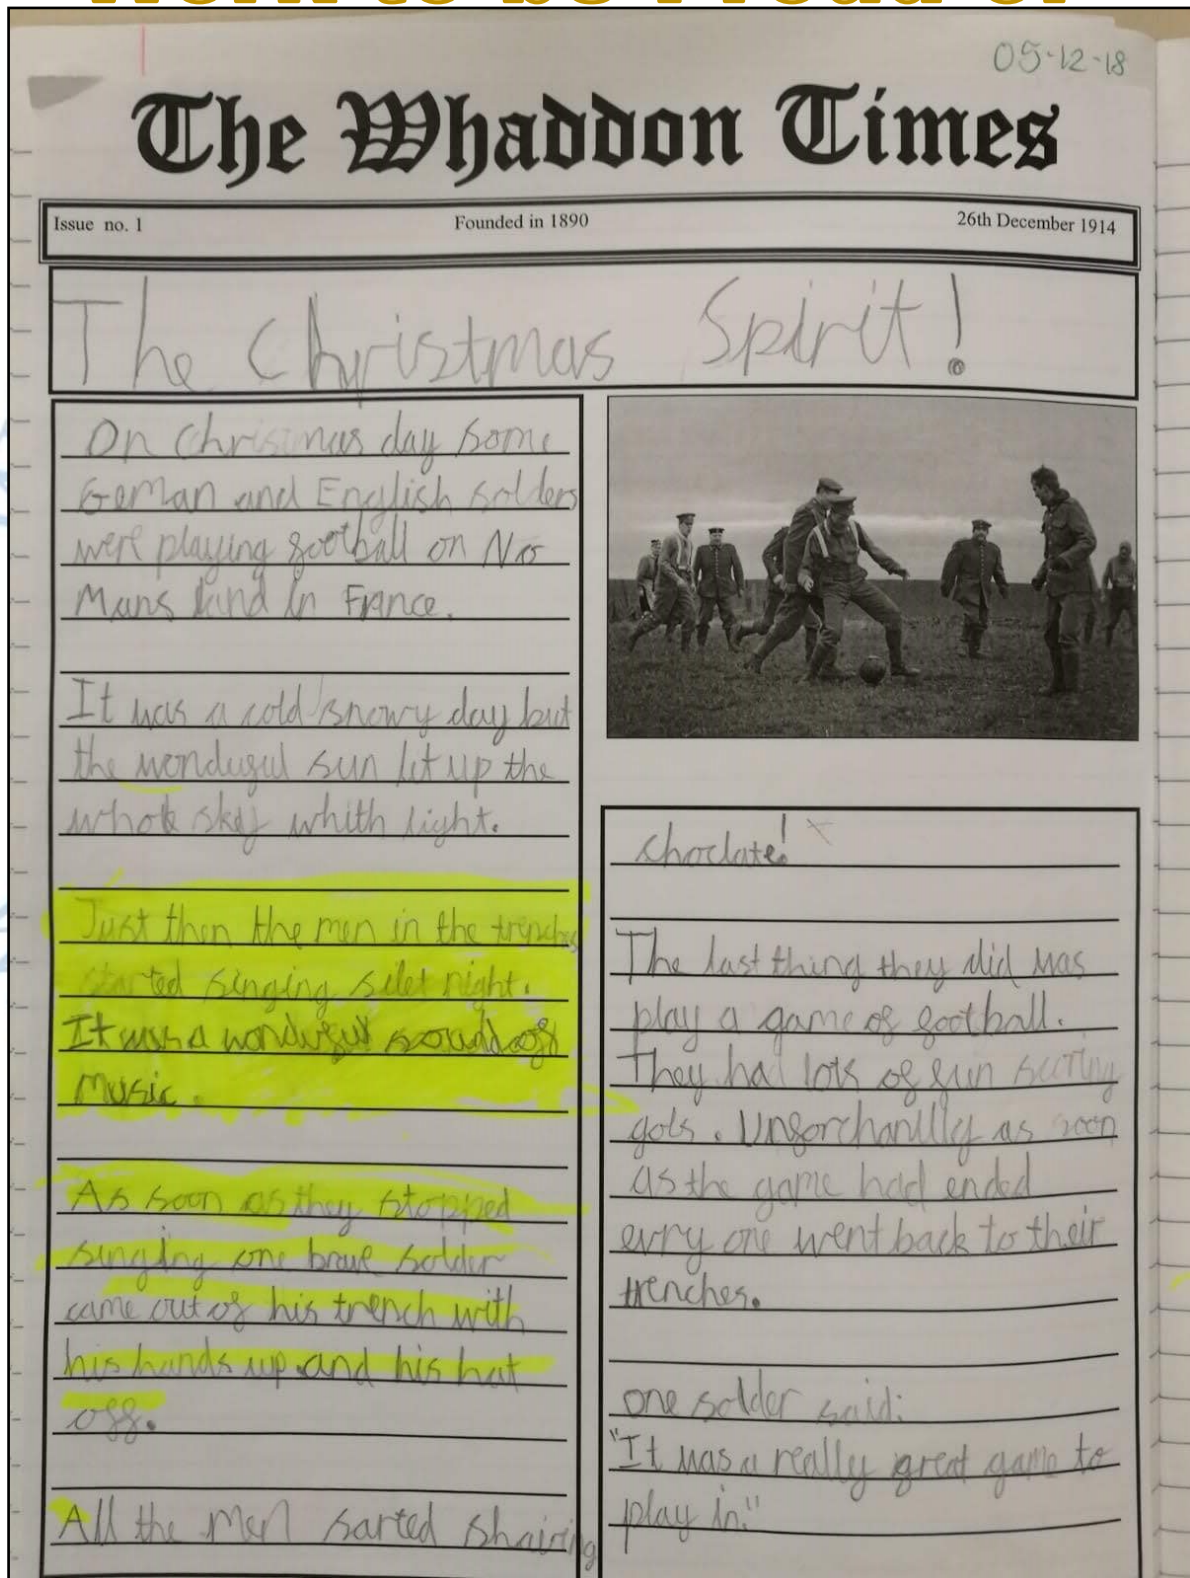 Work to be Proud of
05-12-18
The Whaddon Times
Issue no. 1 Founded in 1890 26th December 1914
The Christmas Spirit!
On Christmas day some
German and English solders
were playing football on No
Mans land in France.
It was a cold snowy day but
the wonduful sun lit up the
whole sky whith light.
Just then the men in the trenches
started singing silet night.
It was a wonduful sound of
Music.
As soon as they stopped
singing one brave solder
came out of his trench with
his hands up and his hat
off.
All the men sarted shairing
choclate!
The last thing they did was
play a game of football.
They had lots of fun scoring
gols. Unforchanlly as soon
as the game had ended
evry one went back to their
trenches.
one solder said:
"It was a really great game to
play in."